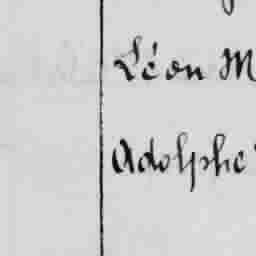 Léon M
Adolphe